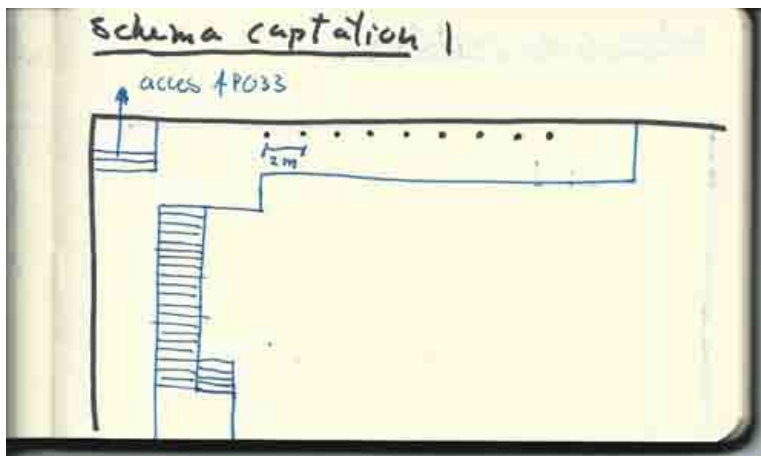 schema captation 1
acces APO33
2m